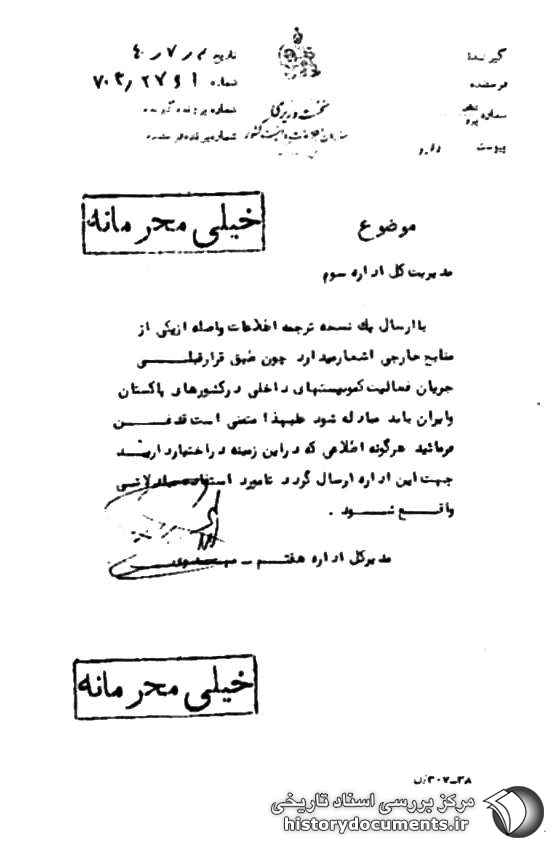 گیرنده
فرستنده
شماره
پیوست دارد
نخست وزیری
سازمان اطلاعات و امنیت کشور
تاریخ ۴۰٫۷٫۲
شماره
شماره پرونده گیرنده
شماره پرونده فرستنده
خیلی محرمانه
موضوع
مدیریت کل اداره سوم
با ارسال یك نسخه ترجمه اطلاعات واصله ازیکی از
منابع خارجی اشعار میدارد چون طبق قرارقبلــی
جریان فعالیت کمونیستهای داخلی درکشورهای پاکستان
وایران باید مبادله شود علیهذا متمنی است قدغــن
فرمائید هرگونه اطلاعی که دراین زمینه دراختیاردارنــد
جهت این اداره ارسال گردد تامورد استفاده مبادلاتــی
واقــع شــود .
مدیرکل اداره هفتــم ــ
خیلی محرمانه
۳۸ــ۳۰۷/ن
مرکز بررسی اسناد تاریخی
historydocuments.ir